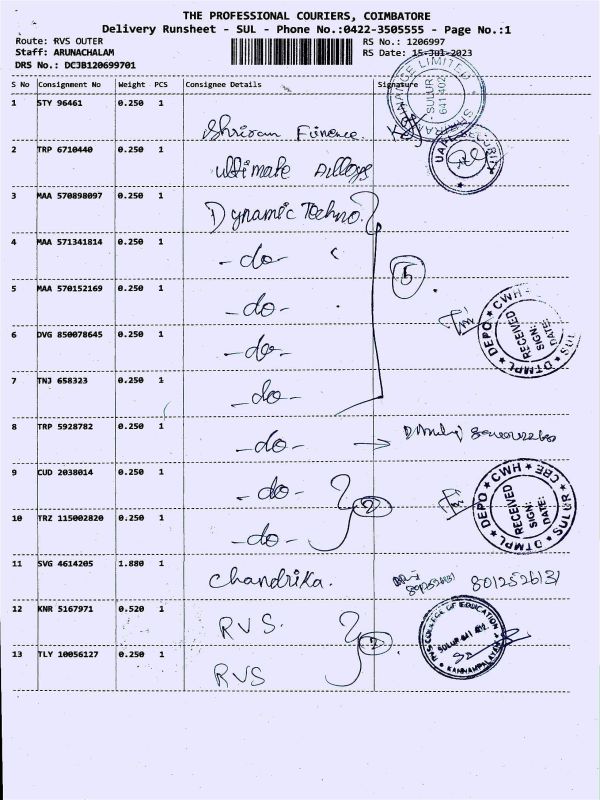 THE PROFESSIONAL COURIERS, COIMBATORE
Delivery Runsheet - SUL - Phone No.:0422-3505555 - Page No.:1
Route: RVS OUTER
RS No.: 1206997
Staff: ARUNACHALAM
RS Date: 15-Jul-2023
DRS No.: DCJB120699701
S No Consignment No Weight PCS Consignee Details Signature
1 STY 96461 0.250 1 Shriram Finance.
FINANCE LIMITED SULUR 641 402
2 TRP 6710440 0.250 1 Ultimate Alloys
3 MAA 570898097 0.250 1 Dynamic Techno.
4 MAA 571341814 0.250 1 -do-
5
5 MAA 570152169 0.250 1 -do-
DTMPL * DEPO * CWH RECEIVED SIGN: DATE:
6 DVG 850078645 0.250 1 -do-
7 TNJ 658323 0.250 1 -do-
8 TRP 5928782 0.250 1 -do-
9 CUD 2038014 0.250 1 -do-
2
DTMPL * DEPO * CWH * CBE * SULUR * RECEIVED SIGN: DATE:
10 TRZ 115002820 0.250 1 -do-
11 SVG 4614205 1.880 1 Chandrika. 8012526131
12 KNR 5167971 0.520 1 RVS.
2
RVS COLLEGE OF EDUCATION SULUR 641 402. KANNAMPALAYAM
13 TLY 10056127 0.250 1 RVS